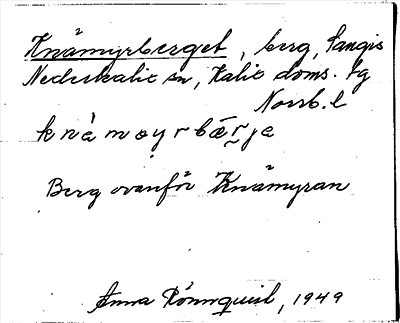 Knämyrberget, berg, Sangis
Nederkalix sn, Kalix doms. lg
Norrb. l
knämyrbärje
Berg ovanför Knämyran
Anna Rönnquist, 1949